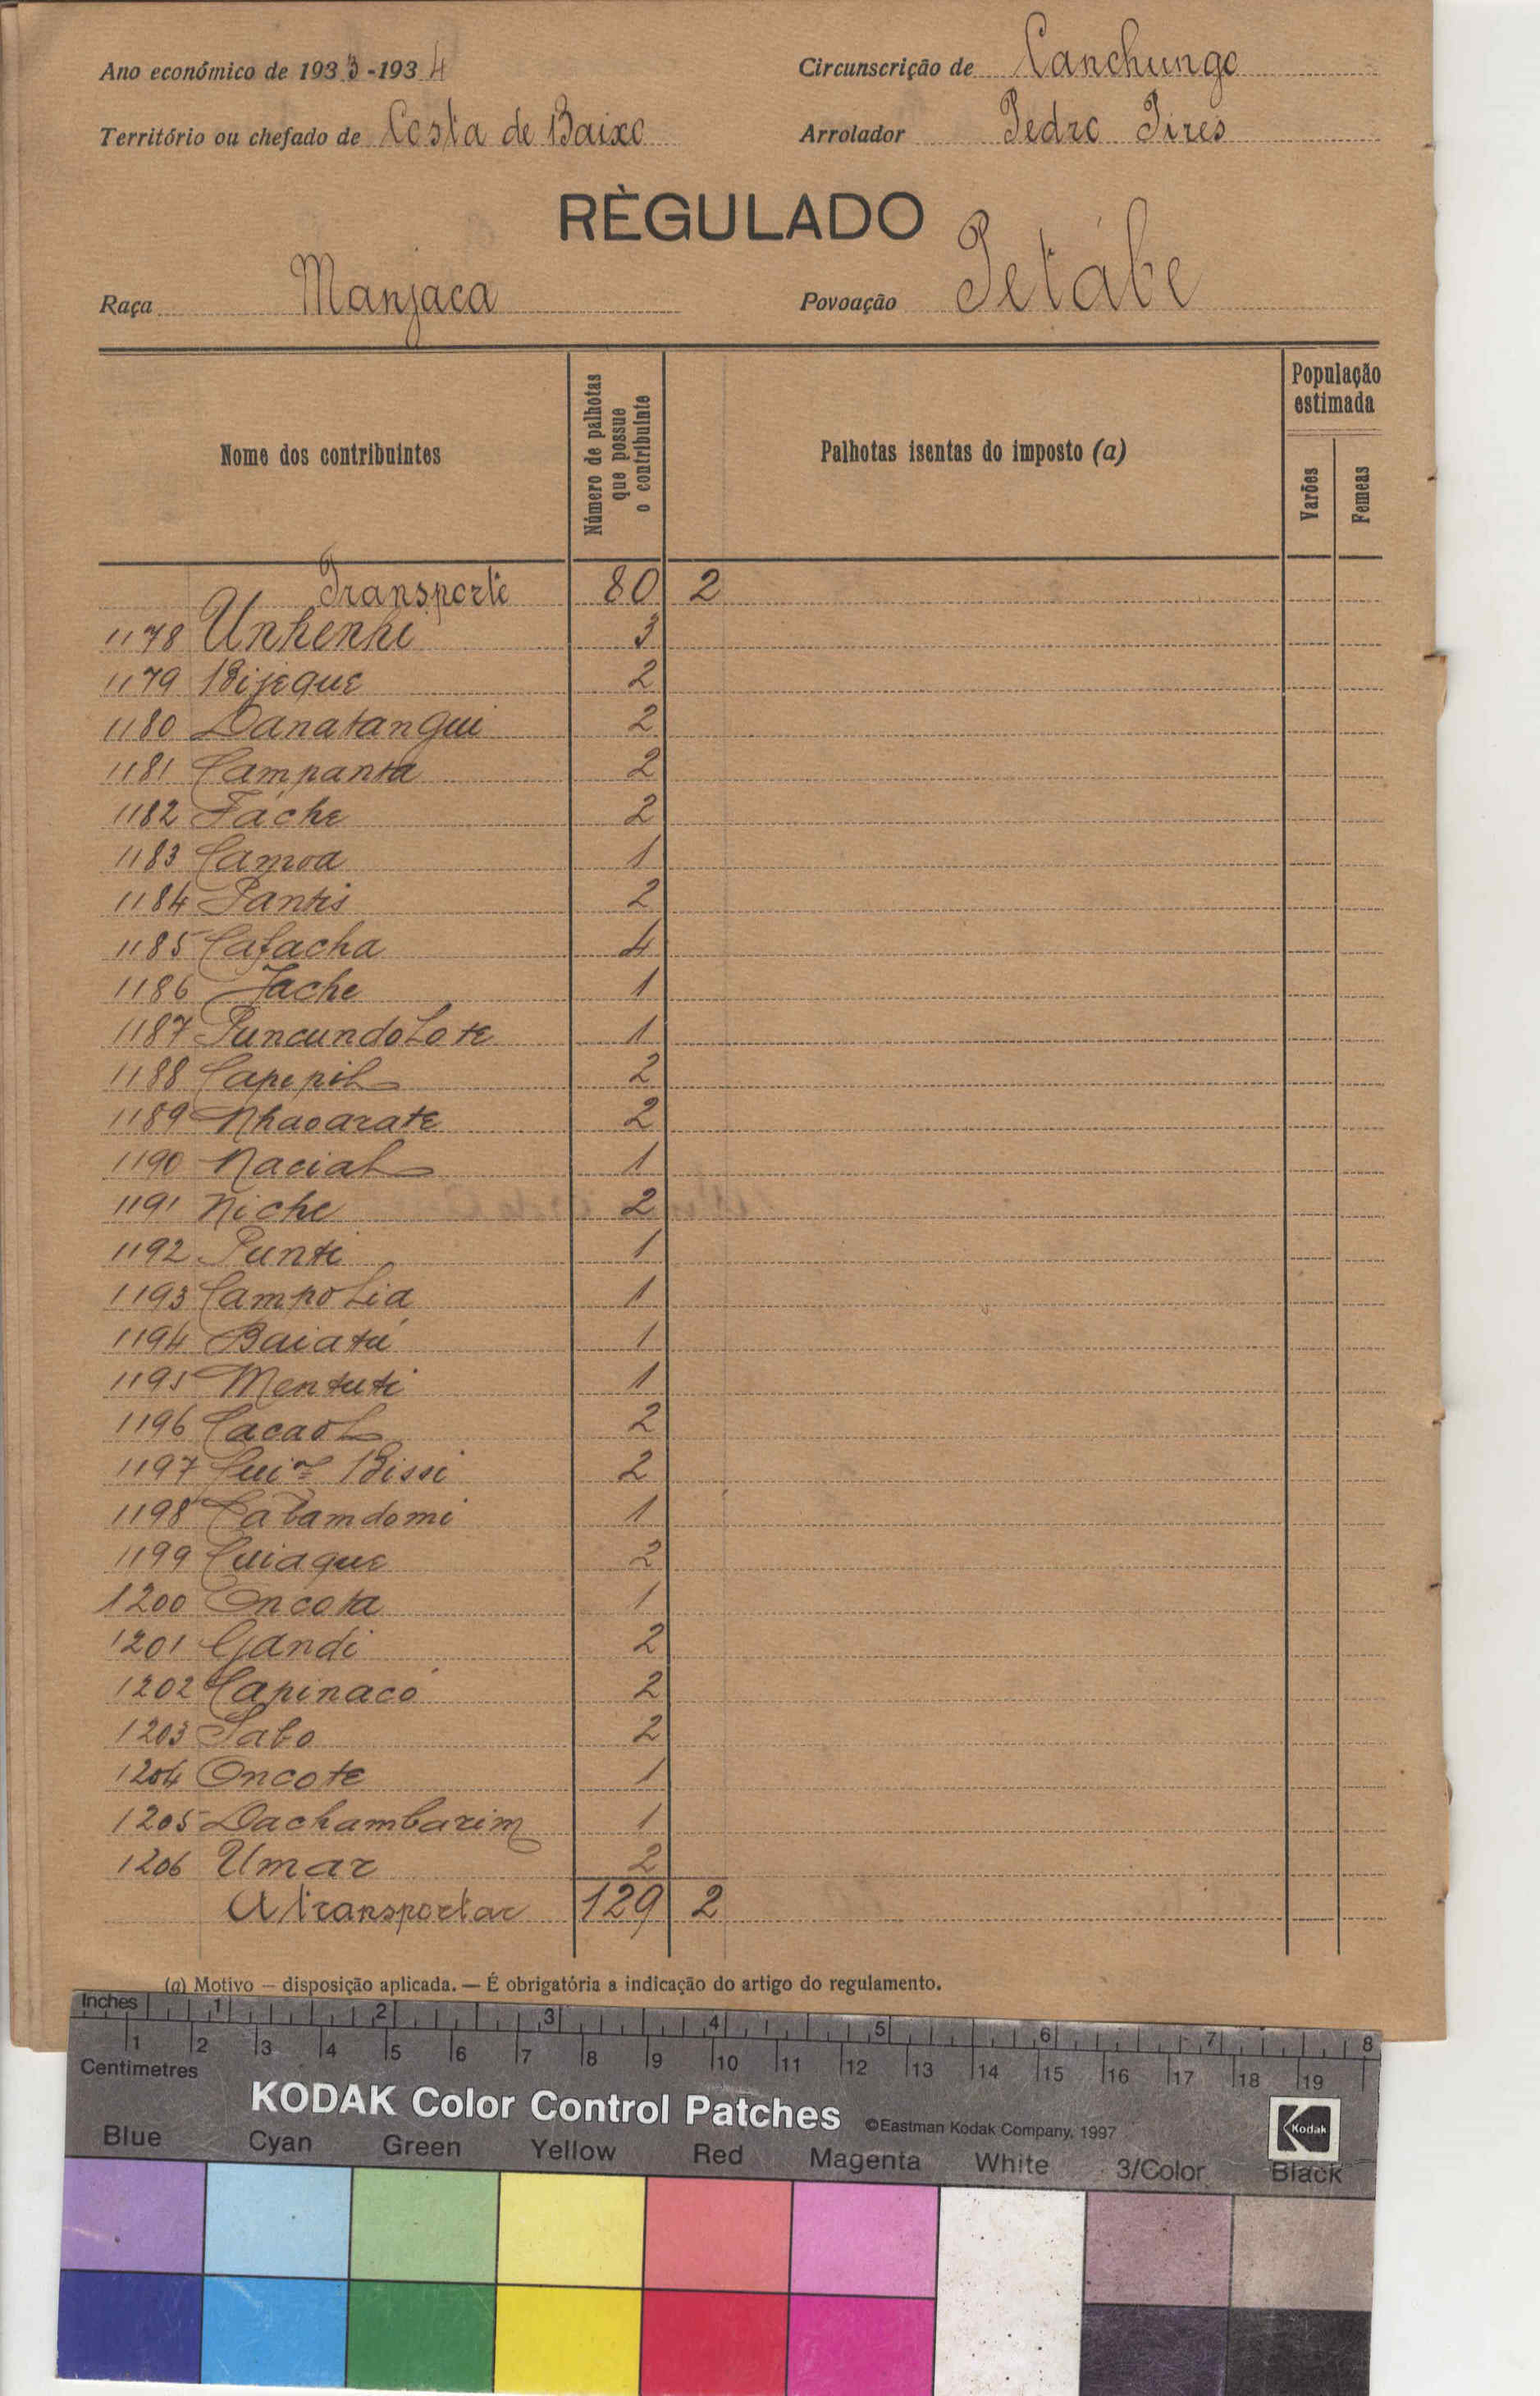 Ano económico de 1933-1934
Circunscrição de Canchungo
Território ou chefado de Costa de Baixo
Arrolador Pedro Pires
RÈGULADO
Raça Manjaca
Povoação Petábe
Nome dos contribuintes
Número de palhotas que possue o contribuinte
Palhotas isentas do imposto (a)
População estimada
Varões
Femeas
Transporte 80 2
1178 Unhenhi 3
1179 Bijeque 2
1180 Danatangui 2
1181 Campanta 2
1182 Fáche 2
1183 Camoa 1
1184 Pantis 2
1185 Cafacha 4
1186 Jache 1
1187 Puncundolote 1
1188 Capepil 2
1189 Nhaoarate 2
1190 Nacial 1
1191 Niche 2
1192 Punti 1
1193 Campolia 1
1194 Baiatú 1
1195 Mentuti 1
1196 Cacaol 2
1197 Bissi 2
1198 Cabamdomi 1
1199 Cuiaque 2
1200 Oncota 1
1201 Gandi 2
1202 Capinacó 2
1203 Sabo 2
1204 Oncote 1
1205 Dachambarim 1
1206 Umar 2
A transportar 129 2
(a) Motivo — disposição aplicada. — É obrigatória a indicação do artigo do regulamento.
Inches 1 2 3 4 5 6 7 8
1 2 3 4 5 6 7 8 9 10 11 12 13 14 15 16 17 18 19
Centimetres
KODAK Color Control Patches ©Eastman Kodak Company, 1997
Kodak
Blue Cyan Green Yellow Red Magenta White 3/Color Black